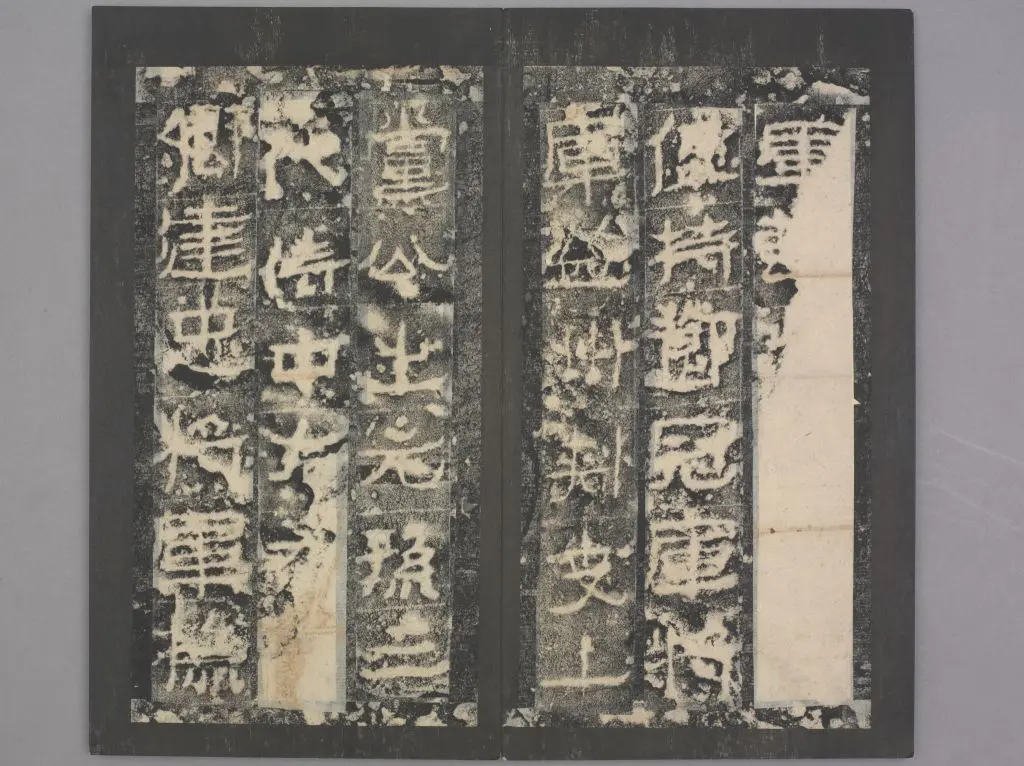 軍
持節冠軍將
軍益州刺史上
黨公之元孫三
代侍中右
建忠將軍